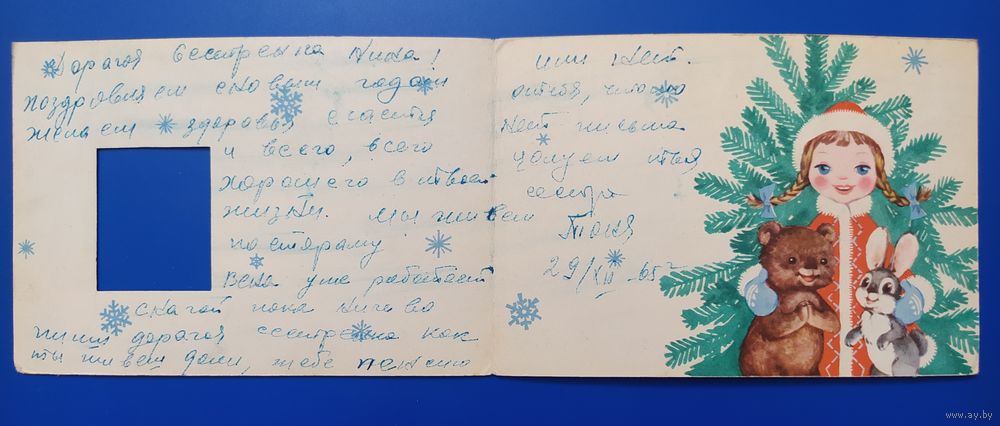 Дарагая Сестрёнка Нина!
поздравляем с новым годом
желаем здоровья счастя
и всего, всего
харошего в твоей
жизни. Мы живем
по старому
Вена уже работает
пока ничево
пиши дарагая сестренка как
ты живеш дали, тебе пенсию
или нет.
отебя, чтото
нет письма
целуем твоя
сестра
Тоня
29/XII-65г
www.ay.by